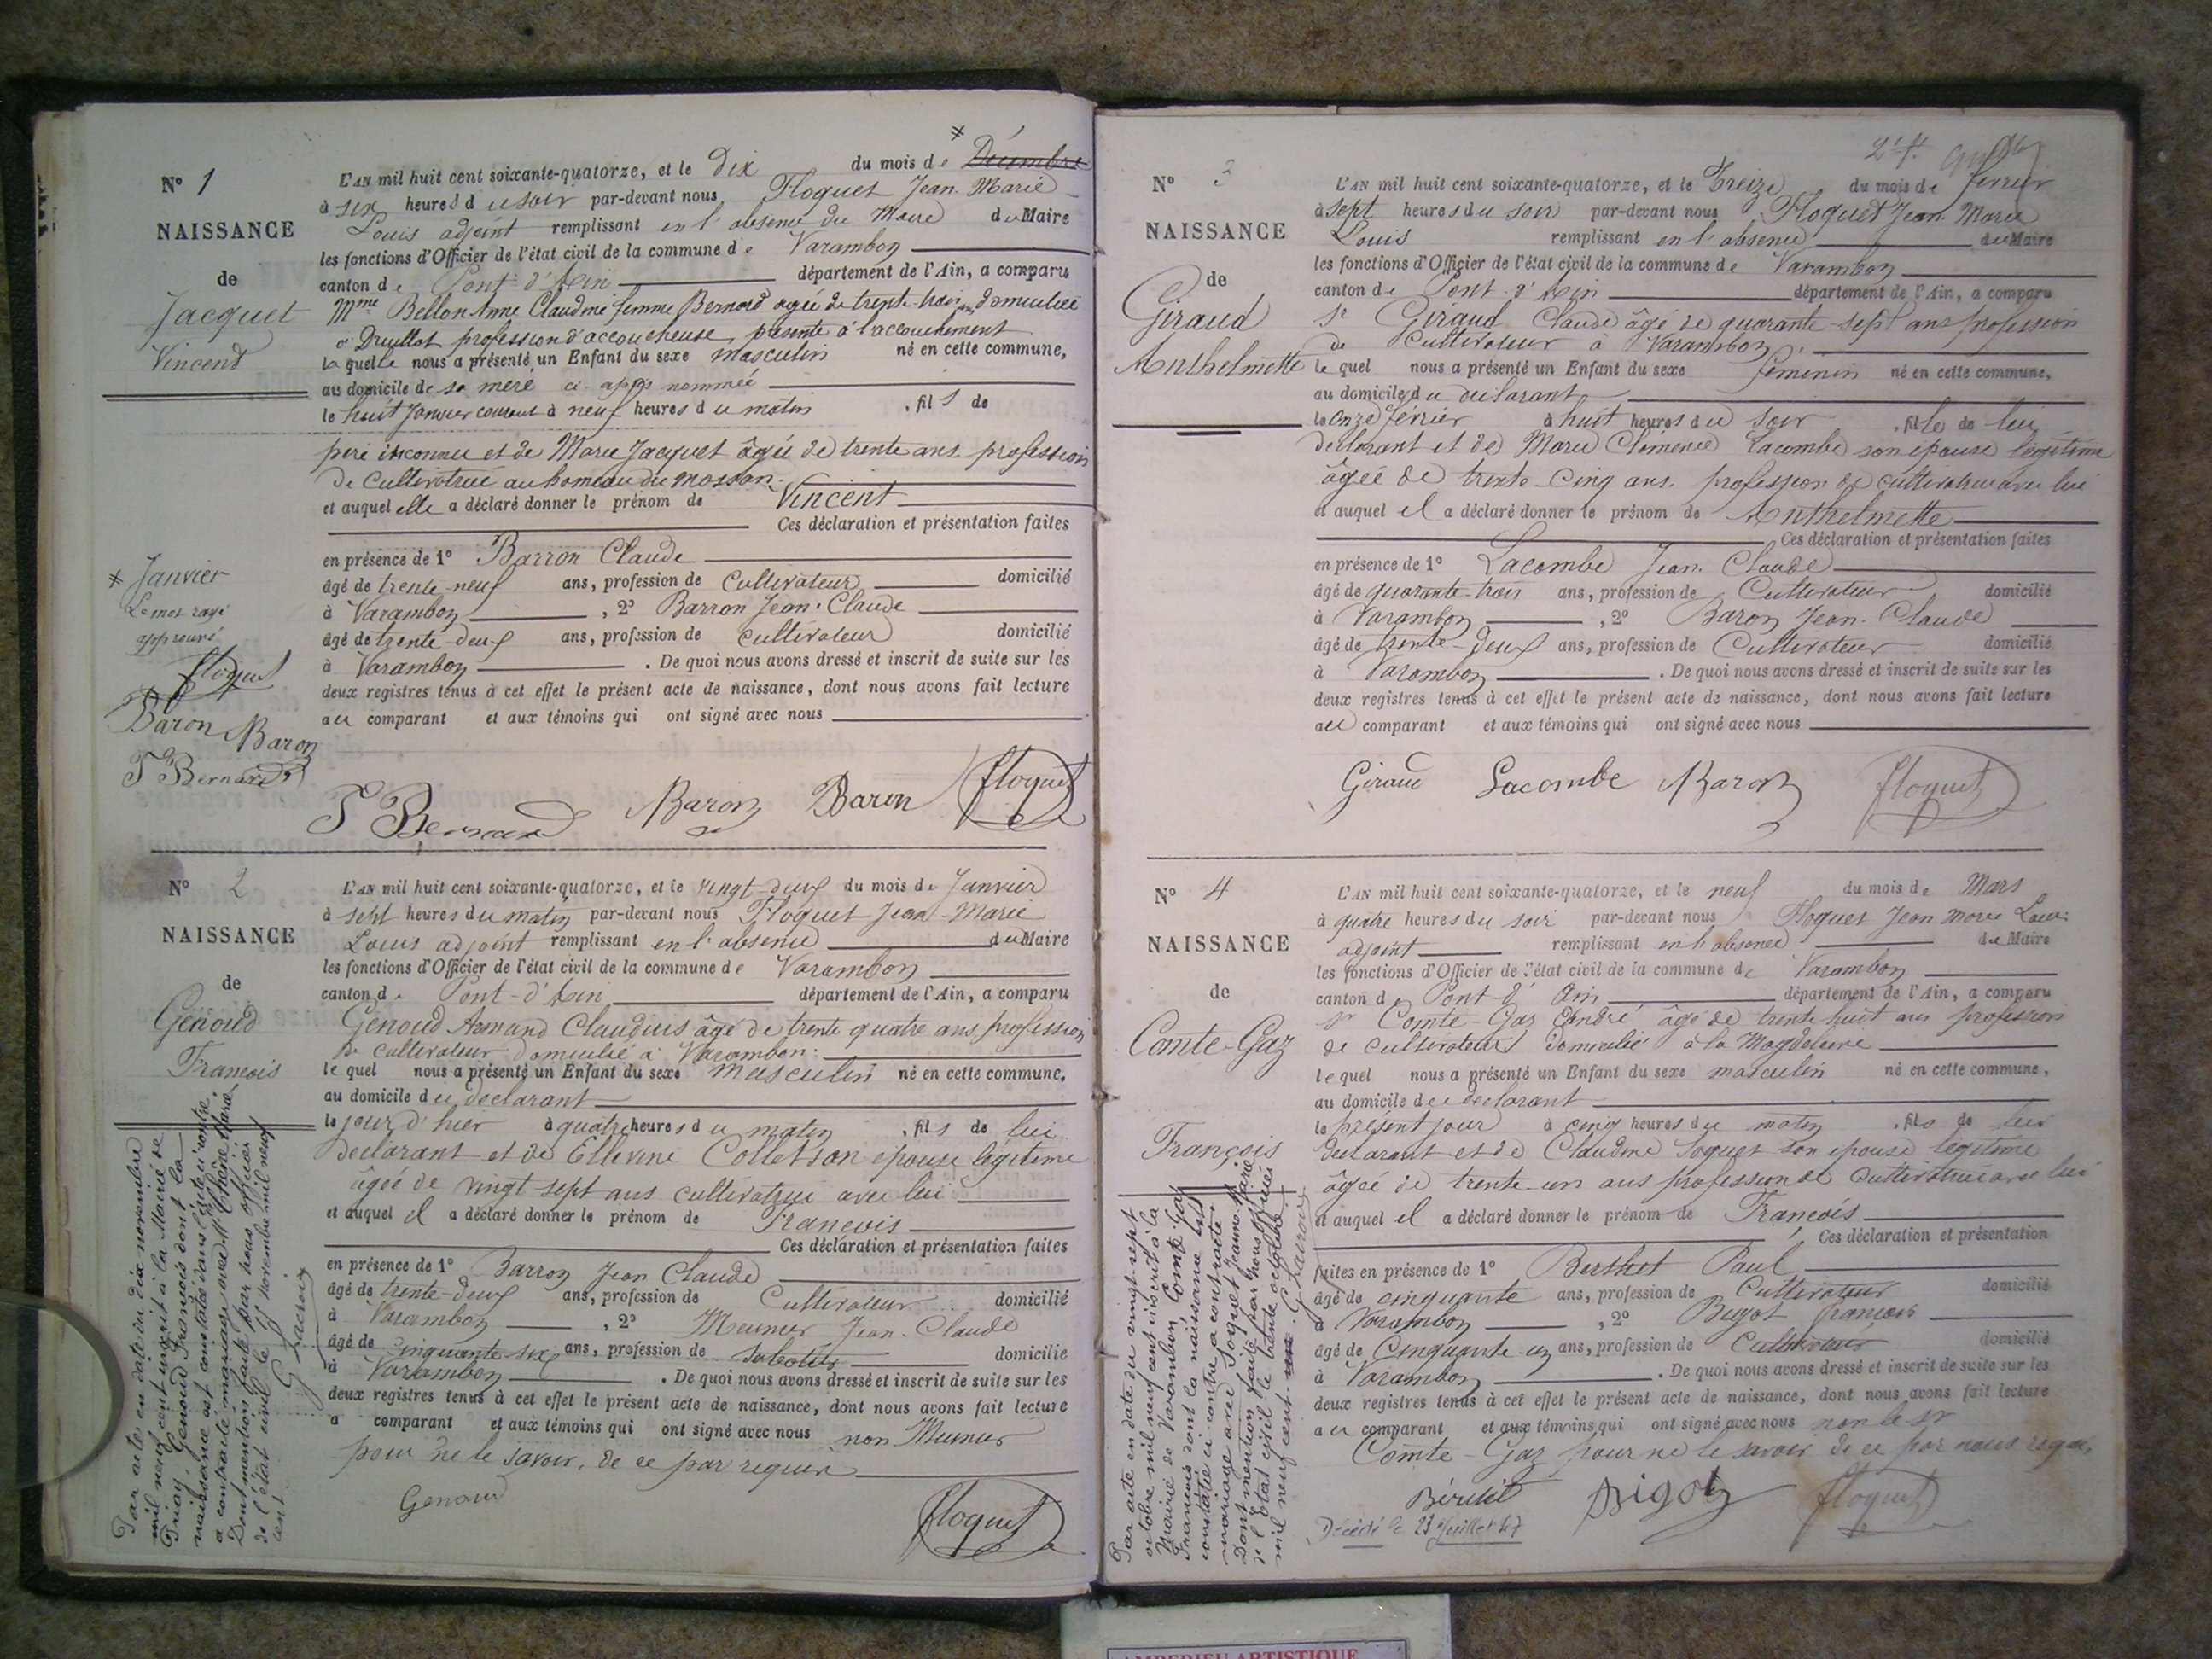 N° 1
NAISSANCE
de
Jacquet
Vincend
L'AN mil huit cent soixante-quatorze, et le Dix du mois de * Décembre
à six heures du soir par-devant nous Floquet Jean Marie
Louis adjoint remplissant en l'absence du Maire du Maire
les fonctions d'Officier de l'état civil de la commune de Varambon
canton de Pont d'Ain département de l'Ain, a comparu
Mme Bellon Anne Claudine femme Bernard agée de trente trois ans domiciliée
à Druillat profession d'accoucheuse, présente à l'accouchement
laquelle nous a présenté un Enfant du sexe masculin né en cette commune,
au domicile de sa mère ci-après nommée
le huit Janvier courant à neuf heures du matin , fils de
père inconnu et de Marie Jacquet âgée de trente ans profession
de Cultivatrice au hameau du
et auquel elle a déclaré donner le prénom de Vincent
Ces déclaration et présentation faites
en présence de 1° Barron Claude
âgé de trente-neuf ans, profession de Cultivateur domicilié
à Varambon , 2° Barron Jean-Claude
âgé de trente-deux ans, profession de Cultivateur domicilié
à Varambon . De quoi nous avons dressé et inscrit de suite sur les
deux registres tenus à cet effet le présent acte de naissance, dont nous avons fait lecture
au comparant et aux témoins qui ont signé avec nous
* Janvier
Le mot rayé
approuvé
floquet
Baron Baron
Bernard
Bernard Baron Baron floquet
N° 2
NAISSANCE
de
Genoud
Francois
L'AN mil huit cent soixante-quatorze, et le vingt-deux du mois de Janvier
à sept heures du matin par-devant nous Floquet Jean-Marie
Louis adjoint remplissant en l'absence du Maire
les fonctions d'Officier de l'état civil de la commune de Varambon
canton de Pont-d'Ain département de l'Ain, a comparu
Genoud Armand Claudius âgé de trente quatre ans, profession
de cultivateur domicilié à Varambon
lequel nous a présenté un Enfant du sexe masculin né en cette commune,
au domicile du declarant
le jour d'hier à quatre heures du matin , fils de lui
declarant et de son épouse légitime
âgée de vingt sept ans cultivatrice avec lui
et auquel il a déclaré donner le prénom de Francois
Ces déclaration et présentation faites
en présence de 1° Barron Jean Claude
âgé de trente-deux ans, profession de Cultivateur domicilié
à Varambon , 2° Meunier Jean-Claude
âgé de cinquante six ans, profession de Sabotier domicilié
à Varambon . De quoi nous avons dressé et inscrit de suite sur les
deux registres tenus à cet effet le présent acte de naissance, dont nous avons fait lecture
a comparant et aux témoins qui ont signé avec nous non Meunier
pour ne le savoir, de ce par requis
Genoud floquet
Par acte en date du dix novembre
mil neuf cent inscrit à la Mairie de
Priay, Genoud François dont la
naissance est constatée dans l'acte ci-contre
a contracté mariage avec Melle
Dont mention faite par nous officier
de l'état civil le novembre mil neuf
cent
N° 3
NAISSANCE
de
Giraud
Anthelmette
L'AN mil huit cent soixante-quatorze, et le Treize du mois de février
à sept heures du soir par-devant nous Floquet Jean Marie
Louis remplissant en l'absence du Maire
les fonctions d'Officier de l'état civil de la commune de Varambon
canton de Pont-d'Ain département de l'Ain, a comparu
Sr Giraud Claude âgé de quarante-sept ans profession
de Cultivateur à Varambon
lequel nous a présenté un Enfant du sexe féminin né en cette commune,
au domicile du declarant
le onze février à huit heures du soir , fille de lui
déclarant et de Marie Clémence Lacombe son épouse légitime
âgée de trente-cinq ans profession de cultivatrice avec lui
et auquel il a déclaré donner le prénom de Anthelmette
Ces déclaration et présentation faites
en présence de 1° Lacombe Jean Claude
âgé de quarante-trois ans, profession de Cultivateur domicilié
à Varambon , 2° Baron Jean-Claude
âgé de trente-deux ans, profession de Cultivateur domicilié
à Varambon . De quoi nous avons dressé et inscrit de suite sur les
deux registres tenus à cet effet le présent acte de naissance, dont nous avons fait lecture
au comparant et aux témoins qui ont signé avec nous
Giraud Lacombe Baron floquet
N° 4
NAISSANCE
de
Comte-Gaz
François
L'AN mil huit cent soixante-quatorze, et le neuf du mois de Mars
à quatre heures du soir par-devant nous Floquet Jean Marie Louis
adjoint remplissant en l'absence du Maire
les fonctions d'Officier de l'état civil de la commune de Varambon
canton de Pont-d'Ain département de l'Ain, a comparu
Sr Comte-Gaz André âgé de trente huit ans profession
de cultivateur domicilié à la Magdeleine
lequel nous a présenté un Enfant du sexe masculin né en cette commune,
au domicile du declarant
le présent jour à cinq heures du matin , fils de lui
declarant et de Claudine Soquet son épouse légitime
âgée de trente un ans profession de cultivatrice avec lui
et auquel il a déclaré donner le prénom de Francois
Ces déclaration et présentation
faites en présence de 1° Berthet Paul
âgé de cinquante ans, profession de Cultivateur domicilié
à Varambon , 2° Bigot francois
âgé de Cinquante un ans, profession de Cultivateur domicilié
à Varambon . De quoi nous avons dressé et inscrit de suite sur les
deux registres tenus à cet effet le présent acte de naissance, dont nous avons fait lecture
au comparant et aux témoins qui ont signé avec nous non le Sr
Comte-Gaz pour ne le savoir de ce par nous requis
Bigot floquet
Décédé le 23 Juillet 47
Par acte en date du vingt-sept
octobre mil neuf cent inscrit à la
Mairie de Varambon Comte-Gaz
François dont la naissance est
constatée ci-contre a contracté
mariage avec Soquet Jeanne Marie
Dont mention faite par nous officier
de l'Etat civil le trente octobre
mil neuf cent